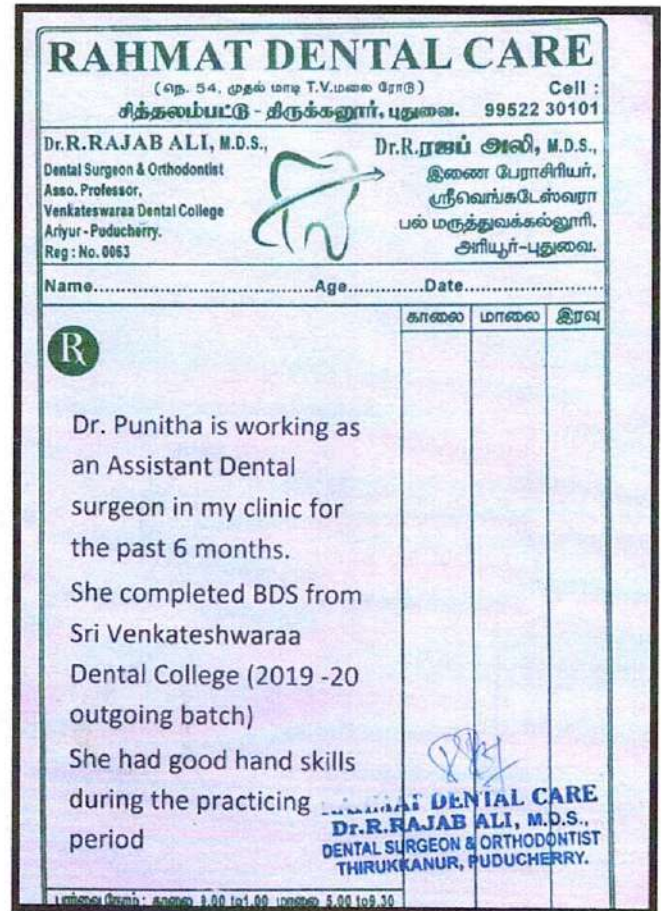 RAHMAT DENTAL CARE
(நெ. 54, முதல் மாடி T.V.மலை ரோடு)
Cell :
சித்தலம்பட்டு - திருக்கனூர், புதுவை. 99522 30101
Dr.R.RAJAB ALI, M.D.S.,
Dental Surgeon & Orthodontist
Asso. Professor,
Venkateswaraa Dental College
Ariyur - Puducherry.
Reg : No. 0063
Dr.R.ரஜப் அலி, M.D.S.,
இணை பேராசிரியர்,
ஸ்ரீவெங்கடேஸ்வரா
பல் மருத்துவக்கல்லூரி,
அரியூர்-புதுவை.
Name..........................................Age..............Date..........................
காலை மாலை இரவு
Rx
Dr. Punitha is working as
an Assistant Dental
surgeon in my clinic for
the past 6 months.
She completed BDS from
Sri Venkateshwaraa
Dental College (2019 -20
outgoing batch)
She had good hand skills
during the practicing
period
RAHMAT DENTAL CARE
Dr.R.RAJAB ALI, M.D.S.,
DENTAL SURGEON & ORTHODONTIST
THIRUKKANUR, PUDUCHERRY.
பார்வை நேரம் : காலை 9.00 to1.00 மாலை 5.00 to9.30